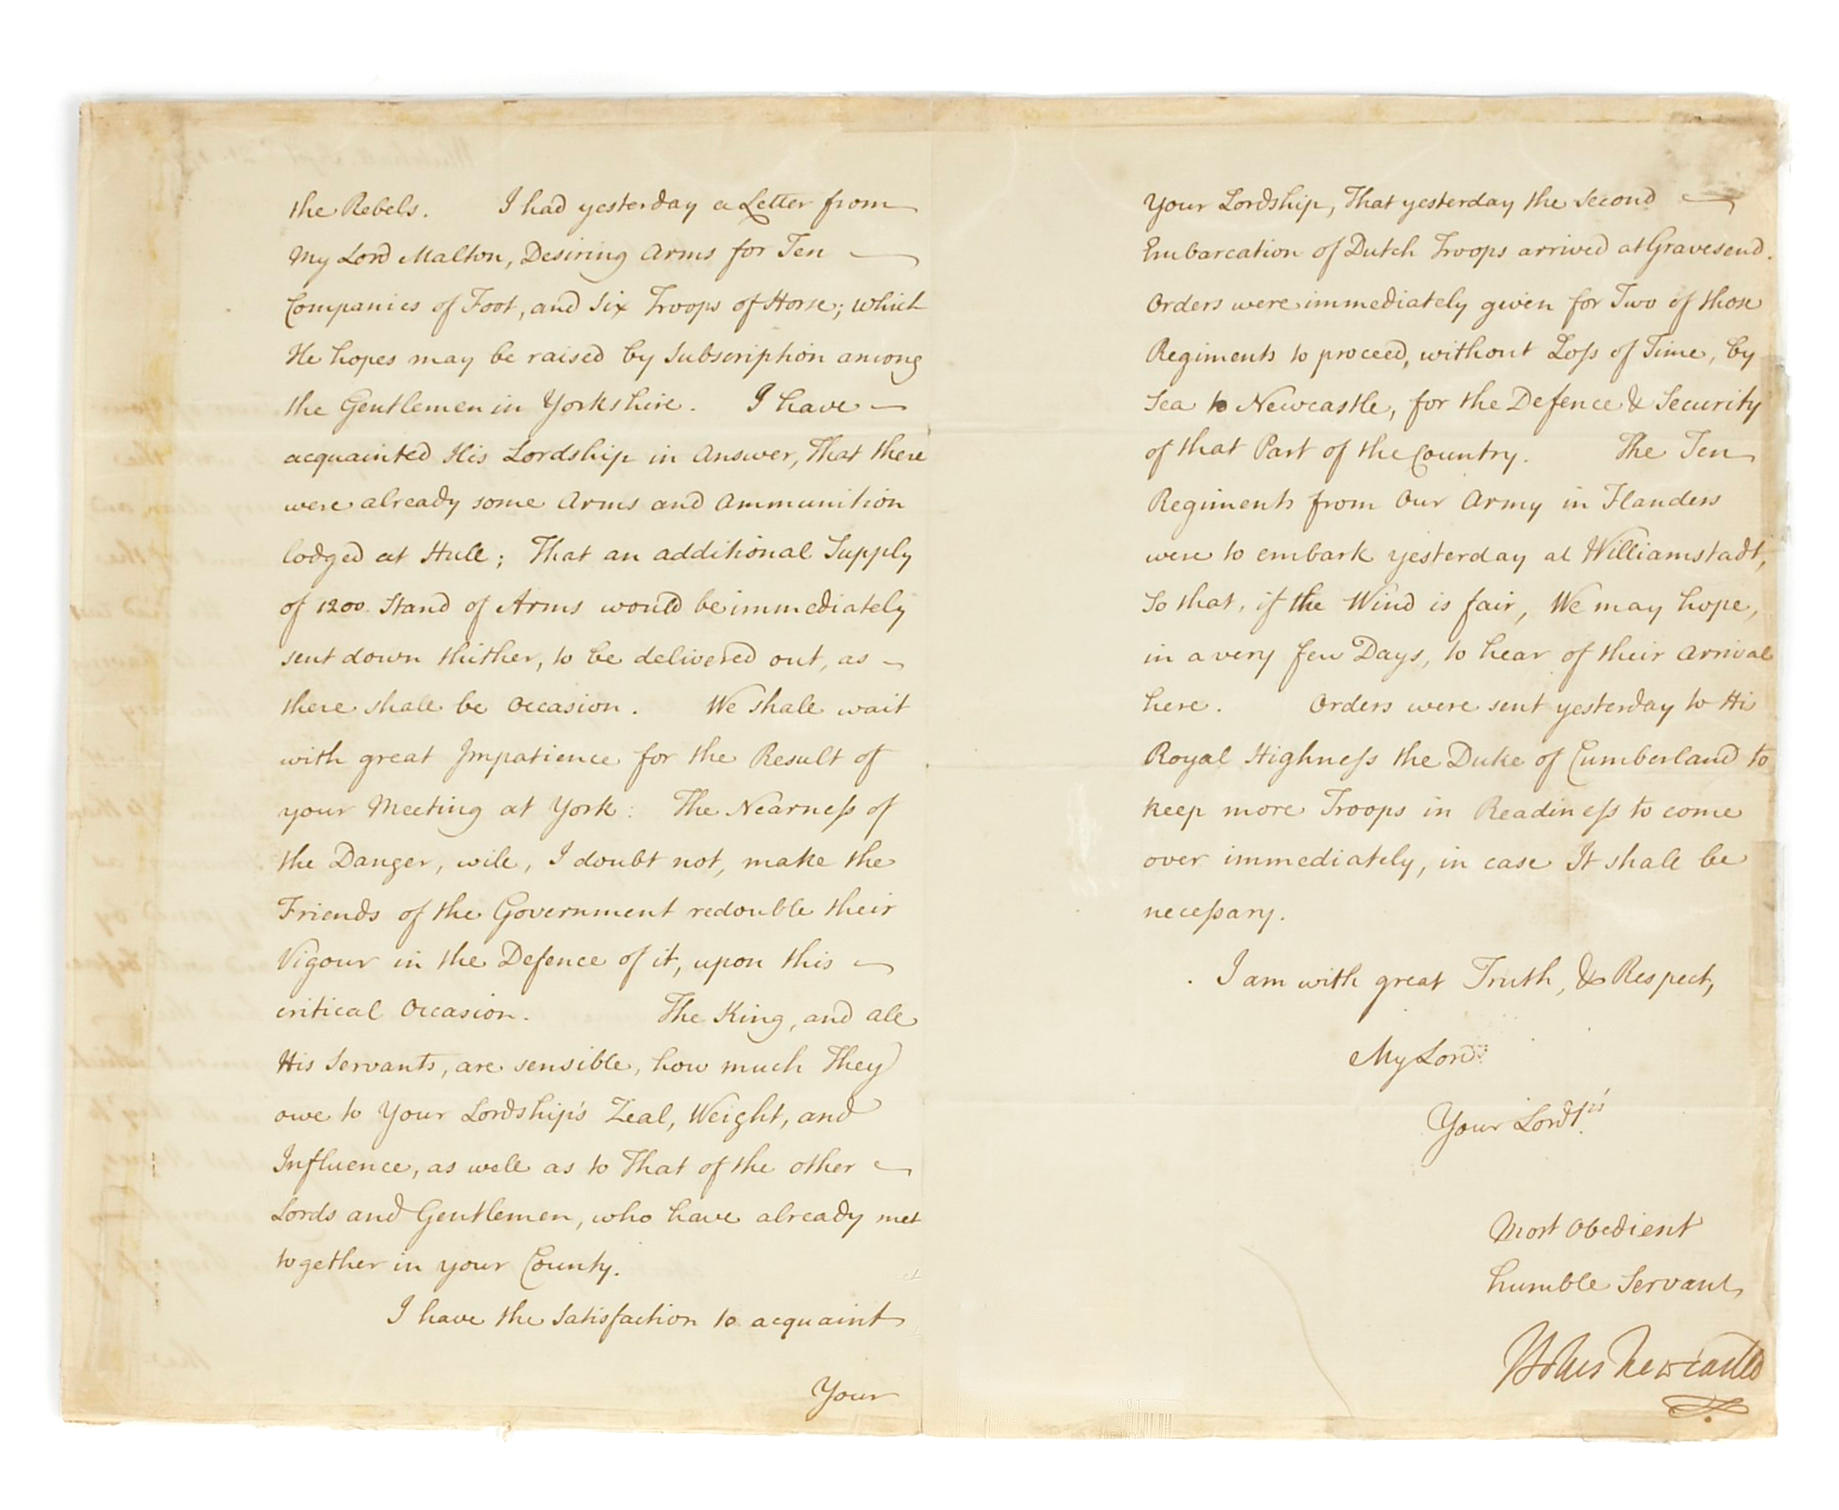 the Rebels. I had yesterday a Letter from
My Lord Malton, Desiring Arms for Ten
Companies of Foot, and Six Troops of Horse; which
He hopes may be raised by Subscription among
the Gentlemen in Yorkshire. I have
acquainted His Lordship in Answer, That there
were already some Arms and Ammunition
lodged at Hull; That an additional Supply
of 1200 Stand of Arms would be immediately
sent down thither, to be delivered out, as
there shall be Occasion. We shall wait
with great Impatience for the Result of
your Meeting at York: The Nearneſs of
the Danger, will, I doubt not, make the
Friends of the Government redouble their
Vigour in the Defence of it, upon this
critical Occasion. The King, and all
His Servants, are sensible, how much They
owe to Your Lordship's Zeal, Weight, and
Influence, as well as to That of the other
Lords and Gentlemen, who have already met
together in your County.
I have the Satisfaction to acquaint
Your
Your Lordship, That yesterday the Second
Embarcation of Dutch Troops arrived at Gravesend.
Orders were immediately given for Two of those
Regiments to proceed, without Loſs of Time, by
Sea to Newcastle, for the Defence & Security
of that Part of the Country. The Ten
Regiments from Our Army in Flanders
were to embark yesterday at Williamstadt,
So that, if the Wind is fair, We may hope,
in a very few Days, to hear of their Arrival
here. Orders were sent yesterday to His
Royal Highneſs the Duke of Cumberland to
keep more Troops in Readineſs to come
over immediately, in case It shall be
neceſsary.
I am with great Truth, & Respect,
My Lord
Your Lordp's
Most Obedient
humble Servant
Holles Newcastle